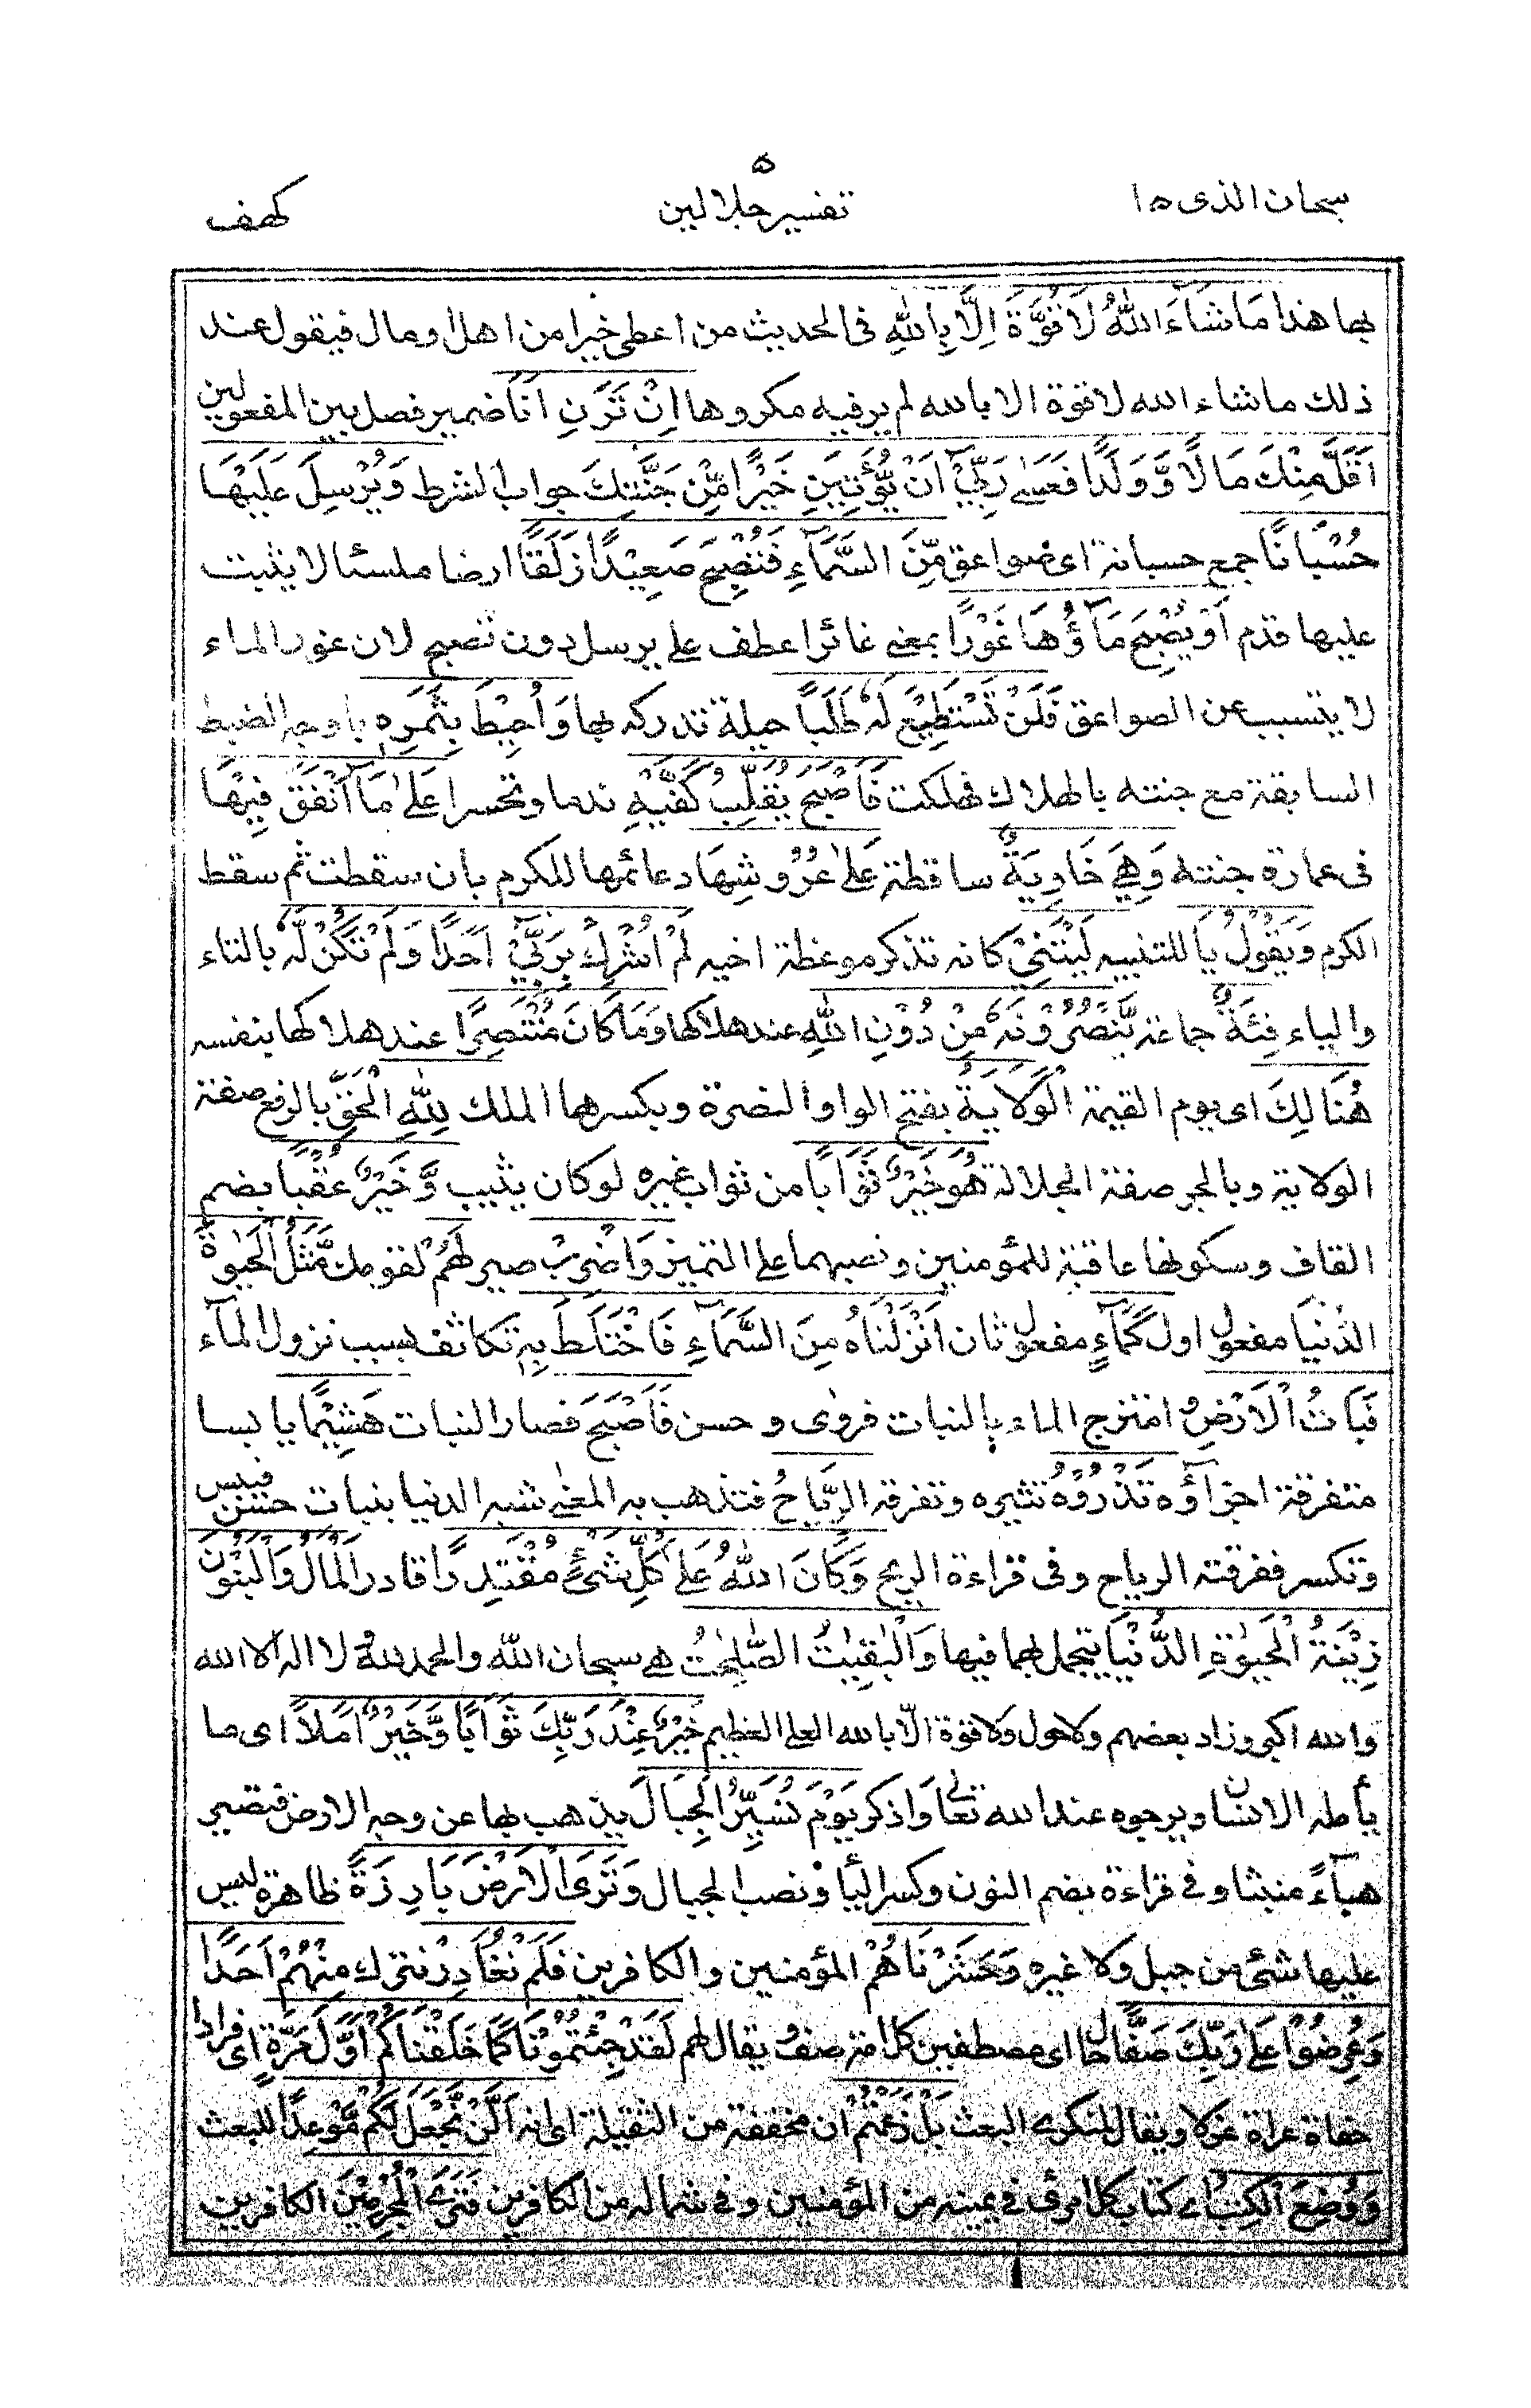 ۵
سبحان الذی ۱۵
تفسیر جلالین
کهف
بها هذا مَا شَآءَ اللّٰهُ لَا قُوَّةَ اِلَّا بِاللّٰهِ فی الحدیث من اعطی خیرا من اهل او مال فیقول عند
ذلك ما شاء الله لا قوة الا بالله لم یر فیه مکروها اِنْ تَرَنِ اَنَا ضمیر فصل بین المفعولین
اَقَلَّ مِنْكَ مَالًا وَّوَلَدًا فَعَسٰی رَبِّیْٓ اَنْ یُّؤْتِیَنِ خَیْرًا مِّنْ جَنَّتِكَ جواب الشرط وَیُرْسِلَ عَلَیْهَا
حُسْبَانًا جمع حسبانة ای صواعق مِّنَ السَّمَآءِ فَتُصْبِحَ صَعِیْدًا زَلَقًا ارضا ملسئا لا یثبت
علیها قدم اَوْ یُصْبِحَ مَآؤُهَا غَوْرًا بمعنی غائرا عطف علی یرسل دون تصبح لان غور الماء
لا یتسبب عن الصواعق فَلَنْ تَسْتَطِیْعَ لَهٗ طَلَبًا حیلة تدرکه بها وَاُحِیْطَ بِثَمَرِهٖ باوجه الضبط
السابقة مع جنته بالهلاك فهلکت فَاَصْبَحَ یُقَلِّبُ کَفَّیْهِ ندما وتحسرا عَلٰی مَآ اَنْفَقَ فِیْهَا
فی عمارة جنته وَهِیَ خَاوِیَةٌ ساقطة عَلٰی عُرُوْشِهَا دعائمها للکرم بان سقطت ثم سقط
الکرم وَیَقُوْلُ یَا للتنبیه لَیْتَنِیْ کانه تذکر موعظة اخیه لَمْ اُشْرِكْ بِرَبِّیْٓ اَحَدًا وَلَمْ تَکُنْ لَّهٗ بالتاء
والیاء فِئَةٌ جماعة یَّنْصُرُوْنَهٗ مِنْ دُوْنِ اللّٰهِ عند هلاکها وَمَا کَانَ مُنْتَصِرًا عند هلاکها بنفسه
هُنَالِكَ ای یوم القیمة الْوَلَایَةُ بفتح الواو النصرة وبکسرها الملك لِلّٰهِ الْحَقِّ بالرفع صفة
الولایة وبالجر صفة الجلالة هُوَ خَیْرٌ ثَوَابًا من ثواب غیره لو کان یثیب وَّخَیْرٌ عُقْبًا بضم
القاف وسکونها عاقبة للمؤمنین ونصبهما علی التمییز وَاضْرِبْ صیر لَهُمْ لقومك مَّثَلَ الْحَیٰوةِ
الدُّنْیَا مفعول اول کَمَآءٍ مفعول ثان اَنْزَلْنَاهُ مِنَ السَّمَآءِ فَاخْتَلَطَ بِهٖ تکاثف بسبب نزول المآء
نَبَاتُ الْاَرْضِ امتزج الماء بالنبات فروی وحسن فَاَصْبَحَ فصار النبات هَشِیْمًا یابسا
متفرقة اجزاؤه تَذْرُوْهُ تثیره وتفرقه الرِّیَاحُ فتذهب به المعنی شبه الدنیا بنبات حسن فیبس
وتکسر ففرقته الریاح وفی قراءة الریح وَکَانَ اللّٰهُ عَلٰی کُلِّ شَیْئٍ مُّقْتَدِرًا قادرا اَلْمَالُ وَالْبَنُوْنَ
زِیْنَةُ الْحَیٰوةِ الدُّنْیَا یتجمل بهما فیها وَالْبٰقِیٰتُ الصّٰلِحٰتُ هی سبحان الله والحمد لله لا اله الا الله
والله اکبر وزاد بعضهم ولا حول ولا قوة الّا بالله العلی العظیم خَیْرٌ عِنْدَ رَبِّكَ ثَوَابًا وَّخَیْرٌ اَمَلًا ای ما
یأمله الانسان ویرجوه عند الله تعالی وَاذکر یَوْمَ نُسَیِّرُ الْجِبَالَ یذهب بها عن وجه الارض فتصیر
هباءً منبثا وفی قراءة بضم النون وکسر الیاء ونصب الجبال وَتَرَی الْاَرْضَ بَارِزَةً ظاهرة لیس
علیها شئ من جبل ولا غیره وَحَشَرْنَاهُمْ المؤمنین والکافرین فَلَمْ نُغَادِرْ نترك مِنْهُمْ اَحَدًا
وَعُرِضُوْا عَلٰی رَبِّكَ صَفًّا حال ای مصطفین کل امة صف یقال لهم لَقَدْ جِئْتُمُوْنَا کَمَا خَلَقْنَاکُمْ اَوَّلَ مَرَّةٍ ای فرادا
حفاة عراة غرلا ویقال لمنکری البعث بَلْ زَعَمْتُمْ ان مخففة من الثقیلة ای انه اَلَّنْ نَّجْعَلَ لَکُمْ مَّوْعِدًا للبعث
وَوُضِعَ الْکِتٰبُ ای کتاب کل امرئ فی یمینه من المؤمنین وفی شماله من الکافرین فَتَرَی الْمُجْرِمِیْنَ الکافرین